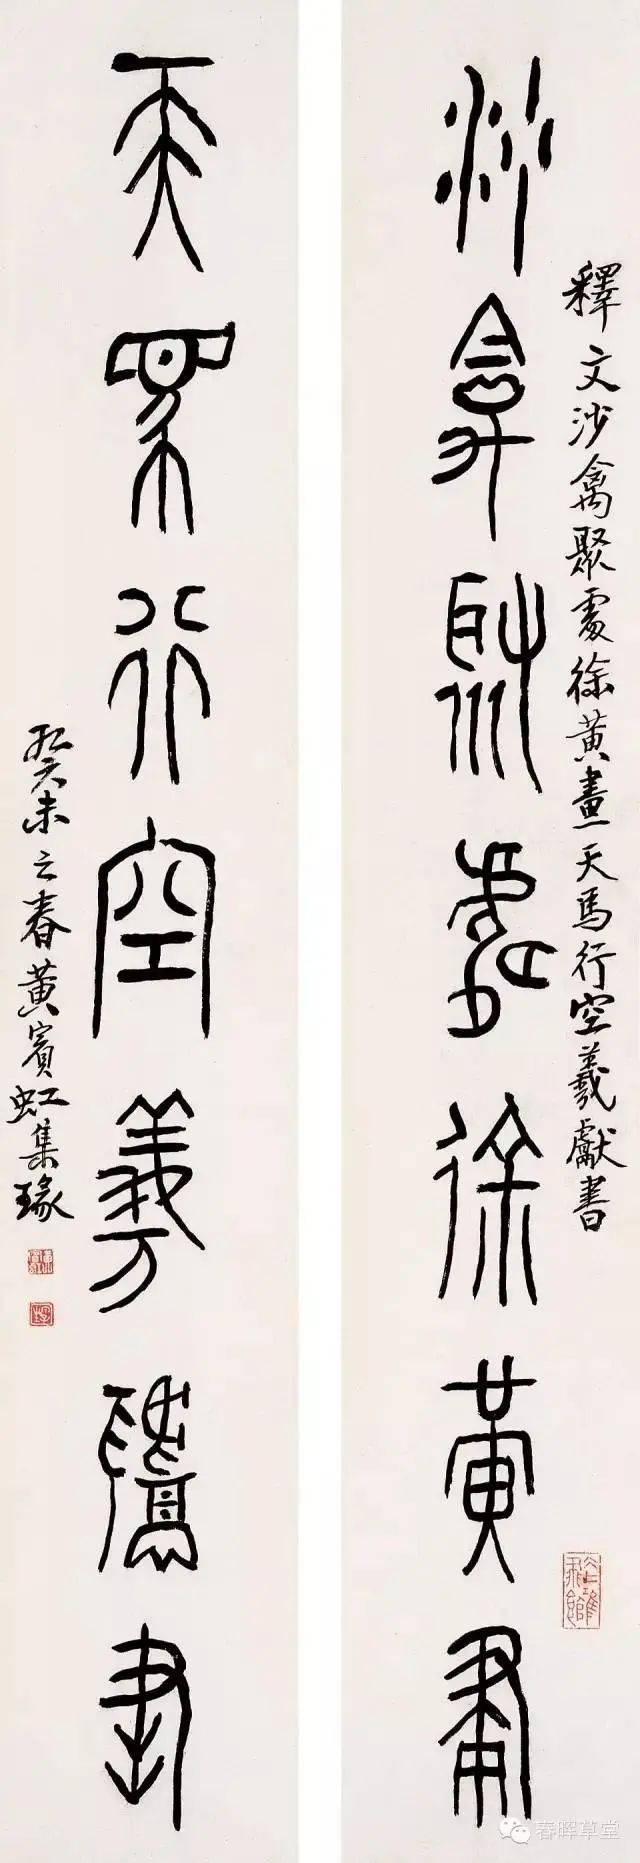 沙禽聚處徐黃畫
釋文沙禽聚處徐黃畫天馬行空羲獻書
天馬行空羲獻書
癸未之春黃賓虹集瑑
春晖草堂